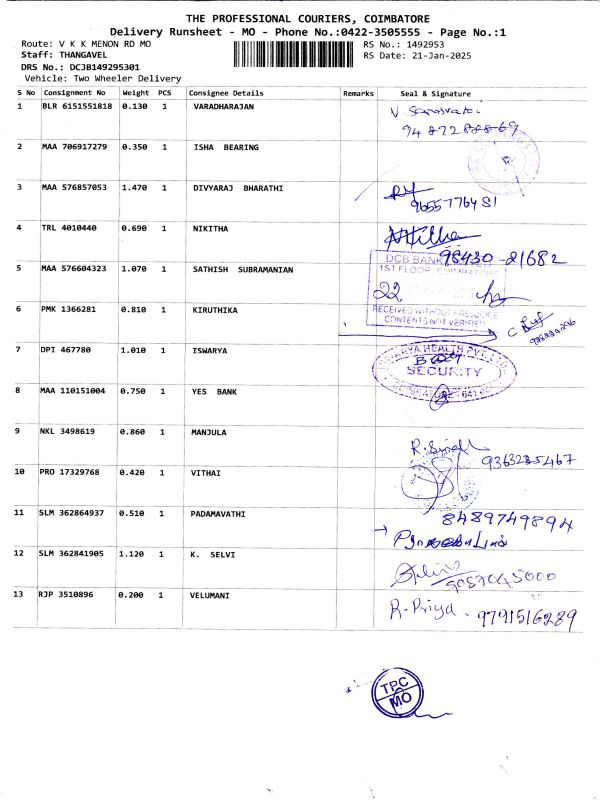 THE PROFESSIONAL COURIERS, COIMBATORE
Delivery Runsheet - MO - Phone No.:0422-3505555 - Page No.:1
Route: V K K MENON RD MO RS No.: 1492953
Staff: THANGAVEL RS Date: 21-Jan-2025
DRS No.: DCJB149295301
Vehicle: Two Wheeler Delivery
S No Consignment No Weight PCS Consignee Details Remarks Seal & Signature
1 BLR 6151551818 0.130 1 VARADHARAJAN
2 MAA 706917279 0.350 1 ISHA BEARING
3 MAA 576857053 1.470 1 DIVYARAJ BHARATHI
9655776481
4 TRL 4010440 0.690 1 NIKITHA
98430-21682
DCB BANK
1ST FLOOR, COIMBATORE
5 MAA 576604323 1.070 1 SATHISH SUBRAMANIAN
22
6 PMK 1366281 0.810 1 KIRUTHIKA
RECEIVED WITHOUT PREJUDICE
CONTENTS NOT VERIFIED
7 DPI 467780 1.010 1 ISWARYA
SECURITY
8 MAA 110151004 0.750 1 YES BANK
9 NKL 3498619 0.860 1 MANJULA
9363285467
10 PRO 17329768 0.420 1 VITHAI
11 SLM 362864937 0.510 1 PADAMAVATHI
8489749894
12 SLM 362841905 1.120 1 K. SELVI
13 RJP 3510896 0.200 1 VELUMANI
R. Priya. 9791516289
TPC
MO